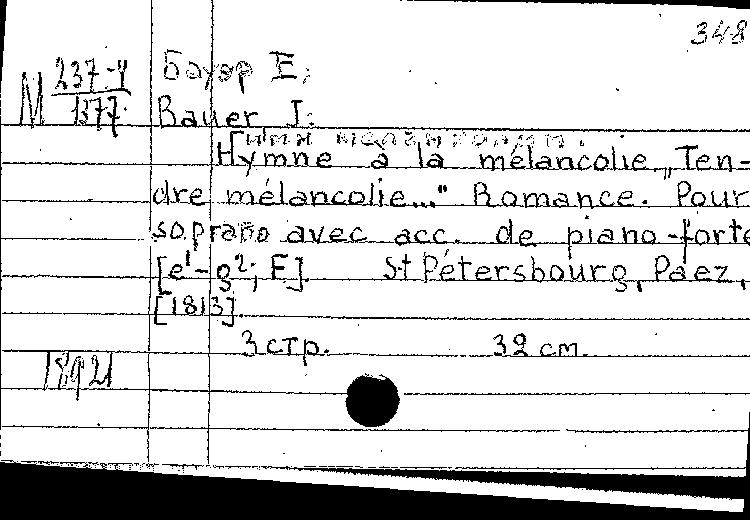 348
М 237-4
1377
Бауэр Е.
Bauer I.
Гимн меланхолии.
Hymne à la mélancolie „Ten-
dre mélancolie..." Romance. Pour
soprano avec acc. de piano-forte
[e¹-g²; F]. St Pétersbourg, Paez,
[1813].
3 стр. 32 cm.
18921